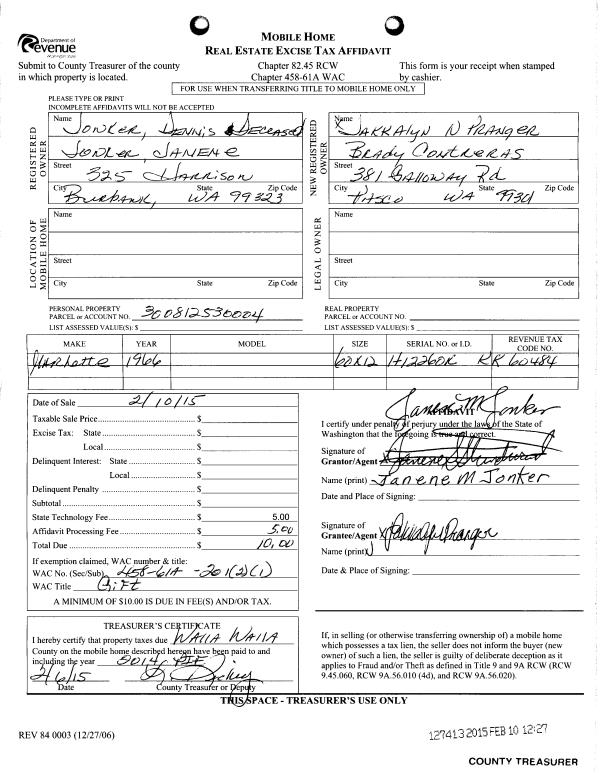 Department of
Revenue
Washington State
MOBILE HOME
REAL ESTATE EXCISE TAX AFFIDAVIT
Submit to County Treasurer of the county
in which property is located.
Chapter 82.45 RCW
Chapter 458-61A WAC
This form is your receipt when stamped
by cashier.
FOR USE WHEN TRANSFERRING TITLE TO MOBILE HOME ONLY
PLEASE TYPE OR PRINT
INCOMPLETE AFFIDAVITS WILL NOT BE ACCEPTED
REGISTERED OWNER
Name Jonker, Dennis Deceased
Jonker, Janene
Street 325 Harrison
City Burbank, State WA Zip Code 99323
NEW REGISTERED OWNER
Name Jakkalyn N Pranger
Brady Contreras
Street 381 Galloway Rd
City Pasco State WA Zip Code 99301
LOCATION OF MOBILE HOME
Name
Street
City State Zip Code
LEGAL OWNER
Name
Street
City State Zip Code
PERSONAL PROPERTY
PARCEL or ACCOUNT NO. 300812530004
LIST ASSESSED VALUE(S): $
REAL PROPERTY
PARCEL or ACCOUNT NO.
LIST ASSESSED VALUE(S): $
MAKE YEAR MODEL SIZE SERIAL NO. or I.D. REVENUE TAX CODE NO.
Marlette 1966 60X12 H12260K KR 60484
Date of Sale 2/10/15
Taxable Sale Price $
Excise Tax: State $
Local $
Delinquent Interest: State $
Local $
Delinquent Penalty $
Subtotal $
State Technology Fee $ 5.00
Affidavit Processing Fee $ 5.00
Total Due $ 10.00
If exemption claimed, WAC number & title:
WAC No. (Sec/Sub) 458-61A-201(2)(1)
WAC Title Gift
A MINIMUM OF $10.00 IS DUE IN FEE(S) AND/OR TAX.
Janene M Jonker
AFFIDAVIT
I certify under penalty of perjury under the laws of the State of
Washington that the foregoing is true and correct.
Signature of
Grantor/Agent X
Name (print) Janene M Jonker
Date and Place of Signing:
Signature of
Grantee/Agent X
Name (print)
Date & Place of Signing:
TREASURER'S CERTIFICATE
I hereby certify that property taxes due Walla Walla
County on the mobile home described hereon have been paid to and
including the year 2014
2/6/15
Date County Treasurer or Deputy
If, in selling (or otherwise transferring ownership of) a mobile home
which possesses a tax lien, the seller does not inform the buyer (new
owner) of such a lien, the seller is guilty of deliberate deception as it
applies to Fraud and/or Theft as defined in Title 9 and 9A RCW (RCW
9.45.060, RCW 9A.56.010 (4d), and RCW 9A.56.020).
THIS SPACE - TREASURER'S USE ONLY
REV 84 0003 (12/27/06)
127413 2015 FEB 10 12:27
COUNTY TREASURER